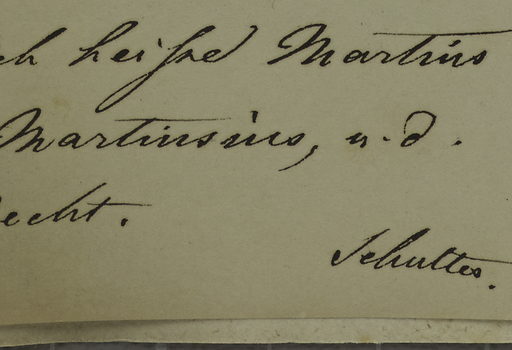 ch heiße Martius
Martinsius, u. d.
echt.
Schultes.